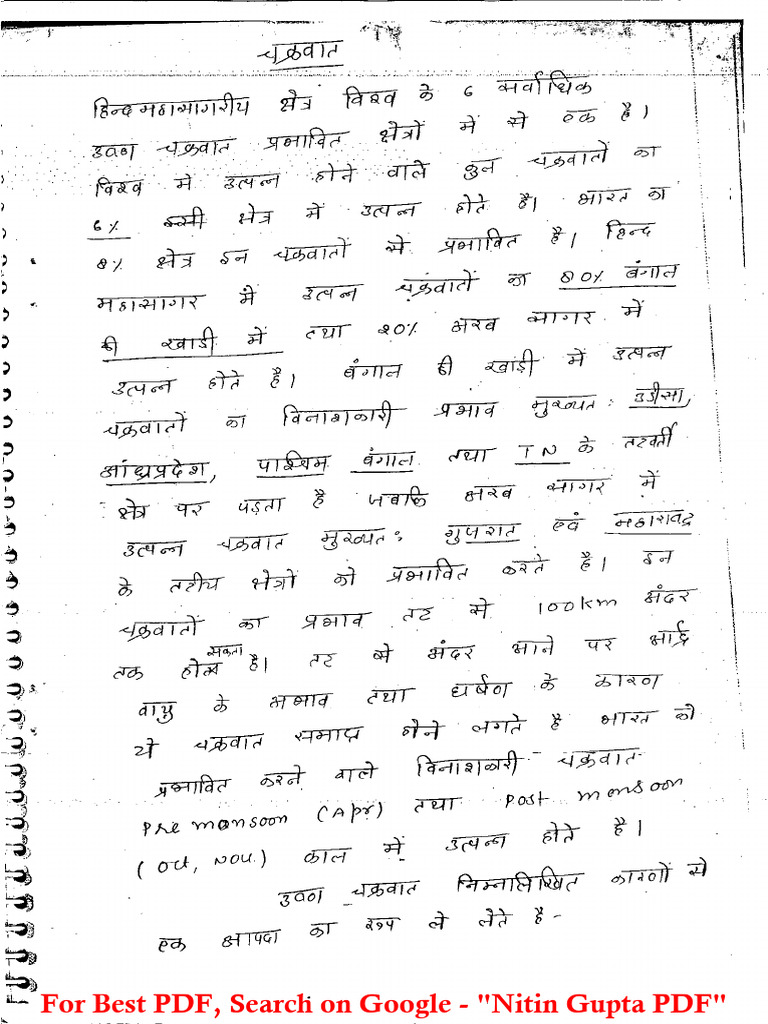 चक्रवात
हिन्द महासागरीय क्षेत्र विश्व के 6 सर्वाधिक
उष्ण चक्रवात प्रभावित क्षेत्रों में से एक है।
विश्व में उत्पन्न होने वाले कुल चक्रवातों का
6% इसी क्षेत्र में उत्पन्न होते है। भारत का
8% क्षेत्र इन चक्रवातों से प्रभावित है। हिन्द
महासागर में उत्पन्न चक्रवातों का 80% बंगाल
की खाडी में तथा 20% अरब सागर में
उत्पन्न होते है। बंगाल की खाडी में उत्पन्न
चक्रवातों का विनाशकारी प्रभाव मुख्यत: उडीसा,
आंध्रप्रदेश, पश्चिम बंगाल तथा TN के तटवर्ती
क्षेत्र पर पड़ता है जबकि अरब सागर में
उत्पन्न चक्रवात मुख्यत: गुजरात एवं महाराष्ट्र
के तटीय क्षेत्रों को प्रभावित करते है। इन
चक्रवातों का प्रभाव तट से 100km अंदर
तक हो सकता है। तट से अंदर आने पर आर्द्र
वायु के अभाव तथा घर्षण के कारण
ये चक्रवात समाप्त होने लगते है भारत को
प्रभावित करने वाले विनाशकारी चक्रवात
Pre monsoon (Apr) तथा Post monsoon
(Oct, Nov.) काल में उत्पन्न होते है।
उष्ण चक्रवात निम्नलिखित कारणों से
एक आपदा का रूप ले लेते है -
For Best PDF, Search on Google - "Nitin Gupta PDF"